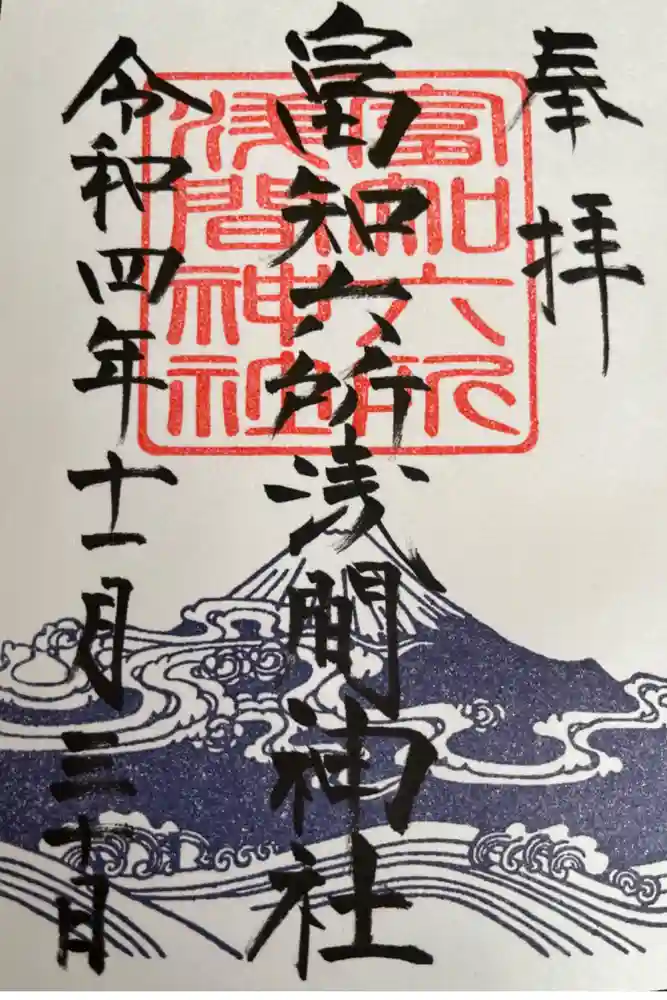 奉拝
富知六所浅間神社
富知六所
浅間神社
令和四年十一月三十日